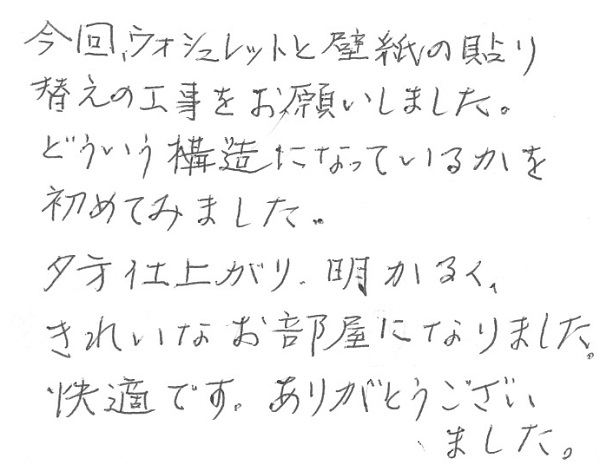 今回、ウォシュレットと壁紙の貼り
替えの工事をお願いしました。
どういう構造になっているかを
初めてみました。
夕方仕上がり、明かるく、
きれいなお部屋になりました。
快適です。ありがとうござい
ました。